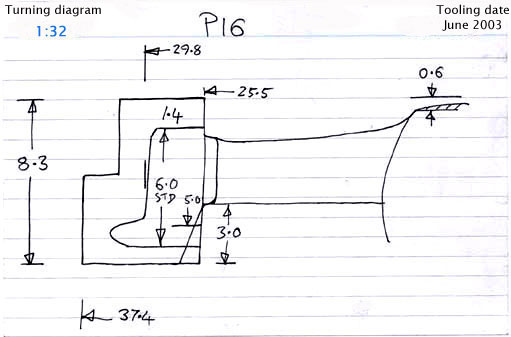 Turning diagram
1:32
P16
Tooling date
June 2003
29.8
0.6
25.5
1.4
8.3
6.0
STD
5.0
3.0
37.4